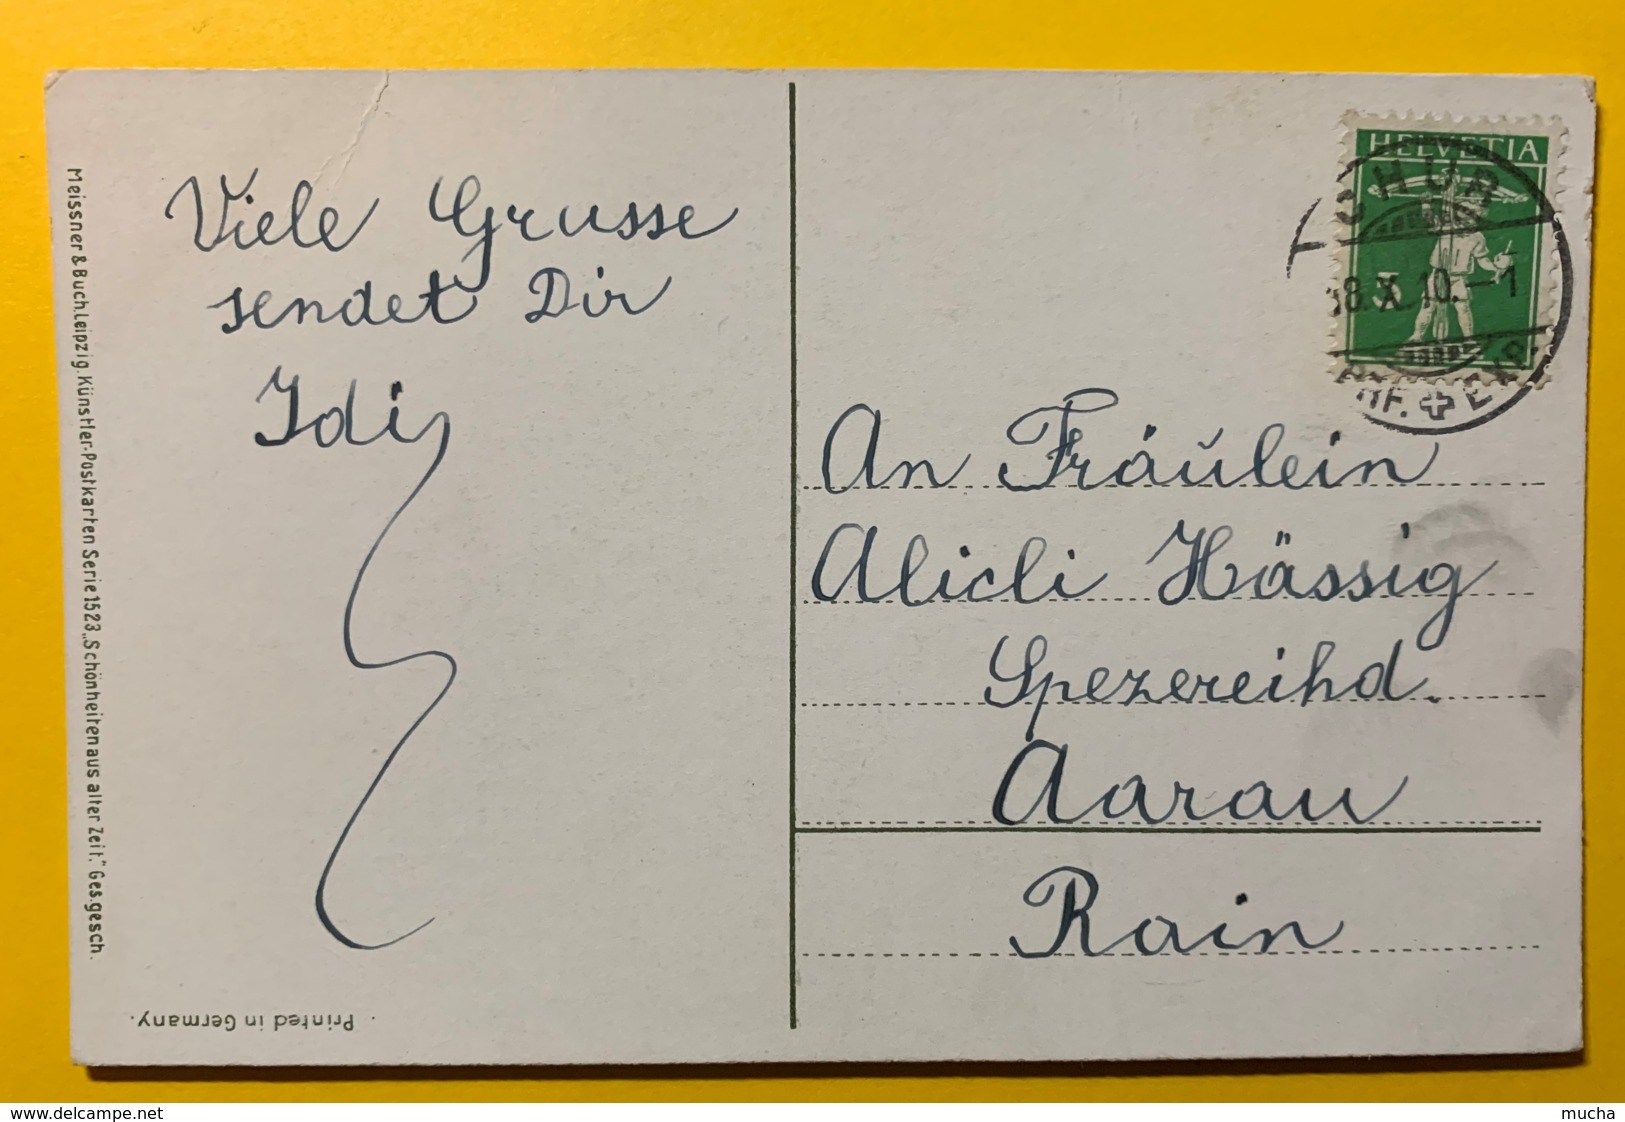 Viele Grusse
sendet Dir
Idi
HELVETIA
CHUR
18. X. 10. – 1
BRF.
An Fräulein
Alicli Hässig
Spezereihd.
Aarau
Rain
Meissner & Buch, Leipzig. Künstler-Postkarten Serie 1523 „Schönheiten aus alter Zeit." Ges. gesch.
Printed in Germany.
www.delcampe.net
mucha